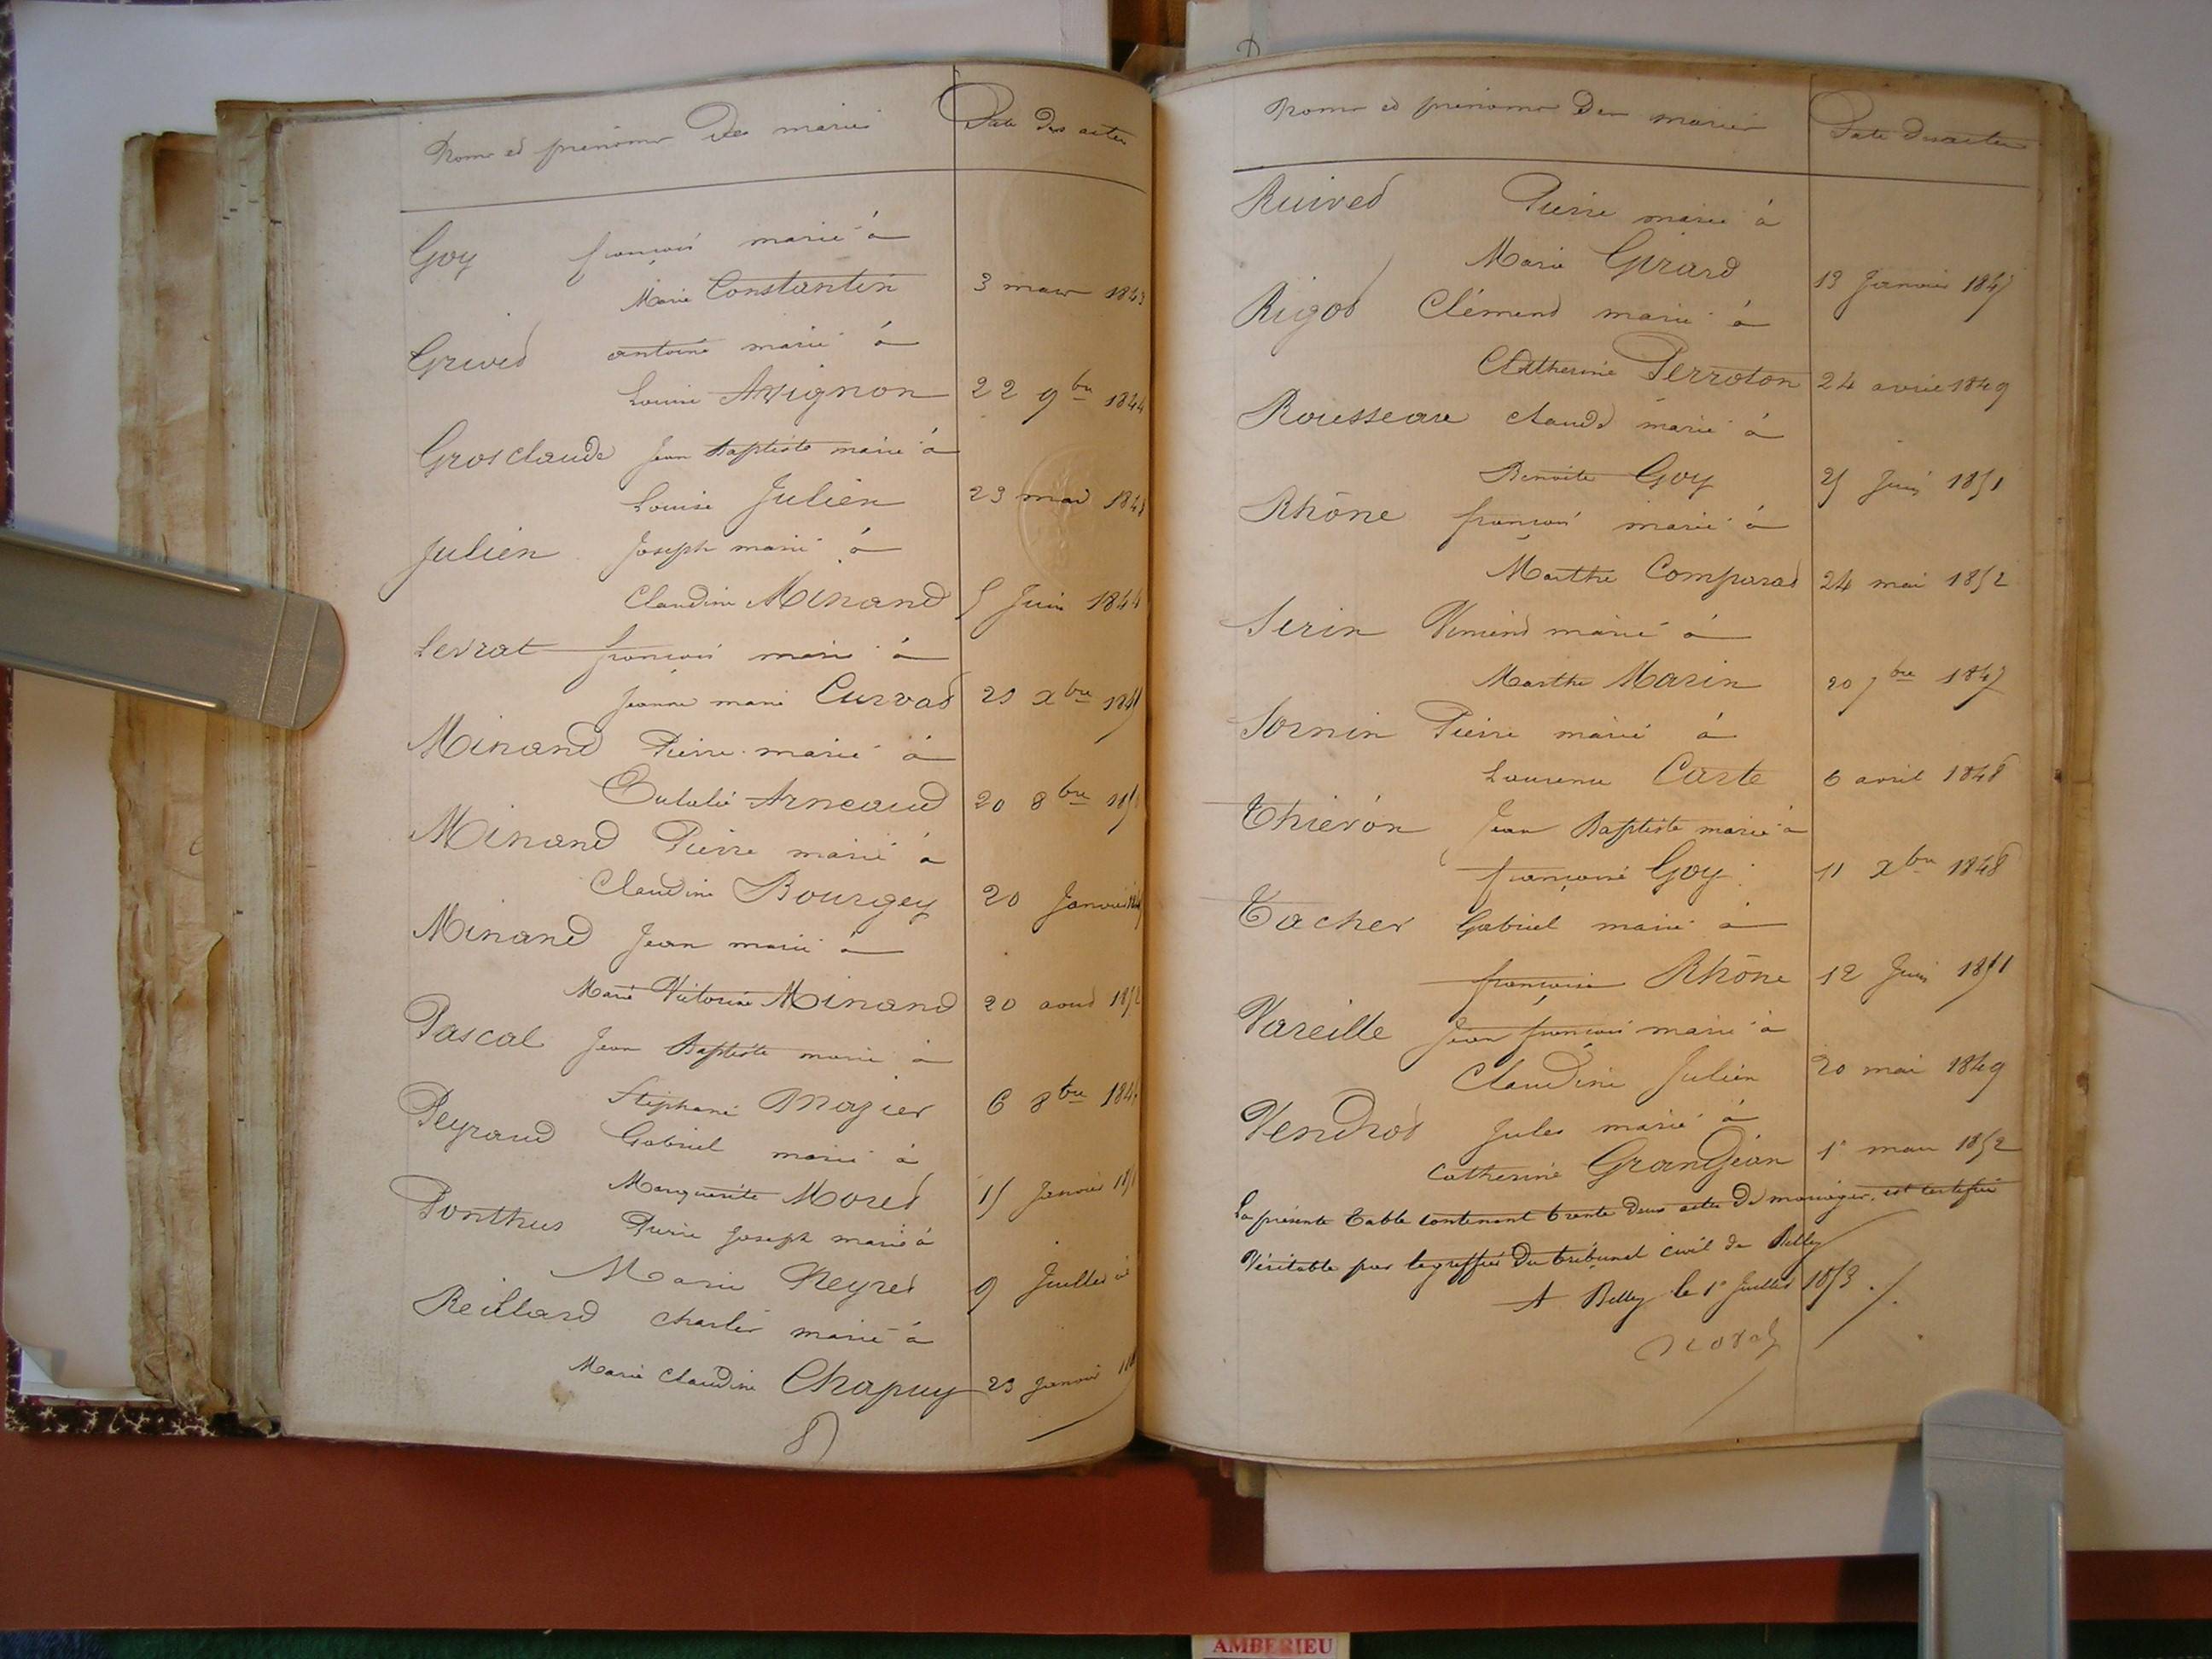 Noms et prénoms des mariés Date des actes
Goy françois marié à
Marie Constantin 3 mars 1843
Grivet antoine marié à
Louise Avignon 22 9bre 1844
Grosclaude Jean Baptiste marié à
Louise Julien 23 mai 184
Julien Joseph marié à
Claudine Minand 5 Juin 1844
Levrat françois marié à
Jeanne marie Curvat 20 Xbre
Minand Pierre marié à
Eulalie Arneaud 20 8bre
Minand Pierre marié à
Claudine Bourgey 20 Janvier
Minand Jean marié à
Marie Victorine Minand 20 aout 1852
Pascal Jean Baptiste marié à
Stéphanie Mazier 6 8bre 184
Peyraud Gabriel marié à
Marguerite Moret 15 Janvier
Ponthus Pierre Joseph marié à
Marie Neyret 9 Juillet
Reillard Charles marié à
Marie Claudine Chapuy 23 Janvier
Noms et prénoms des mariés Date des actes
Ruivet Pierre marié à
Marie Girard 13 Janvier 1847
Rigot Clément marié à
Catherine Perroton 24 avril 1849
Rousseau Claude marié à
Benoite Goy 25 Juin 1851
Rhône françois marié à
Marthe Comparat 24 mai 1852
Serin Vincent marié à
Marthe Marin 20 7bre 1847
Sornin Pierre marié à
Laurence Carte 6 avril 1848
Thiévon Jean Baptiste marié à
françoise Goy 11 Xbre 1848
Tacher Gabriel marié à
françoise Rhône 12 Juin 1851
Vareille Jean françois marié à
Claudine Julien 20 mai 1849
Vendrot Jules marié à
Catherine Grandjean 1er mars 1852
La présente Table contenant trente deux actes de mariages, est certifiée
Véritable par le greffier du tribunal civil de Belley
A Belley le 1er Juillet 1853 ./.
AMBERIEU